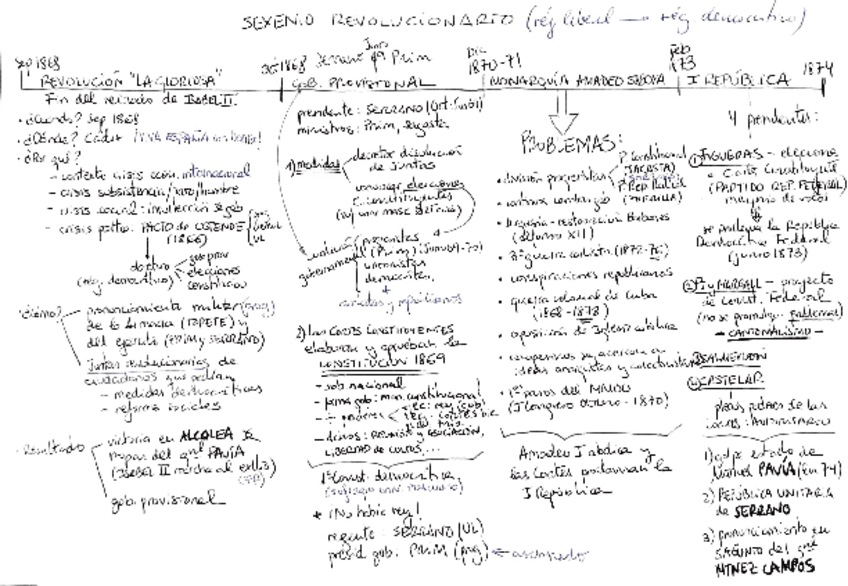 SEXENIO REVOLUCIONARIO (rég. liberal → rég. democrático)
Sep 1868
REVOLUCIÓN "LA GLORIOSA"
Fin del reinado de ISABEL II.
· ¿Cuándo? Sep 1868
· ¿Dónde? Cádiz
¡VIVA ESPAÑA con honra!
· ¿Por qué?
- contexto crisis econ. internacional
- crisis subsistencia / paro / hambre
- crisis social:
- crisis polít.: PACTO de OSTENDE
(1866)
objetivo
(rég. democrático)
gob prov
elecciones
constitución
· ¿Cómo?
pronunciamiento militar (prog)
de la Armada (TOPETE) y
del ejército (PRIM y SERRANO)
Juntas revolucionarias de
ciudadanos que pedían
- medidas democráticas
- reformas sociales
· Resultado
victoria en ALCOLEA
tropas del gral PAVÍA
(ISABEL II marcha al exilio)
gob. provisional
1868 Serrano Prim
GOB. PROVISIONAL
presidente: SERRANO
ministros: Prim, Sagasta
1) medidas
decretar disolución
de Juntas
convocar elecciones
C. constituyentes
(s/ univ masc 25 años)
gubernamental
progresistas
(Prim)
unionistas
demócratas
+
carlistas y republicanos
2) las CORTES CONSTITUYENTES
elaboran y aprueban la
CONSTITUCIÓN 1869
- sob nacional
- forma gob: mon. constitucional
- poderes
- dchos: REUNIÓN y ASOCIACIÓN,
LIBERTAD de CULTOS, ...
1ª Const. democrática
(sufragio univ. masculino)
* ¡No había rey!
regente: SERRANO (UL)
presid. gob: PRIM (prog) ← asesinado
Dic
1870-71
MONARQUÍA AMADEO SABOYA
PROBLEMAS:
· división progresistas
P. Constitucional
(SAGASTA)
P. Rep Radical
(ZORRILLA)
restauración Borbones
(Alfonso XII)
· 3ª guerra carlista (1872-76)
· conspiraciones republicanas
· guerra colonial de Cuba
(1868-1878)
· oposición de Iglesia católica
· campesinos se acercan a
ideas anarquistas y colectivistas
· 1os paros del MUNDO
(I Congreso obrero - 1870)
Amadeo I abdica y
las Cortes proclaman la
I República
Feb
1873
I REPÚBLICA
1874
4 presidentes:
① FIGUERAS - elecciones
a Cortes Constituyentes
(PARTIDO REP. FEDERAL)
mayoría de votos
se proclama la República
Democrática Federal
(junio 1873)
② PI y MARGALL - proyecto
de Const. Federal
(no se promulga: problemas)
- CANTONALISMO -
③ SALMERÓN
④ CASTELAR
plenos poderes de las
Cortes: AUTORITARIO
1) golpe estado de
Manuel PAVÍA (En 74)
2) REPÚBLICA UNITARIA
de SERRANO
3) pronunciamiento en
SAGUNTO del gral
MTNEZ CAMPOS